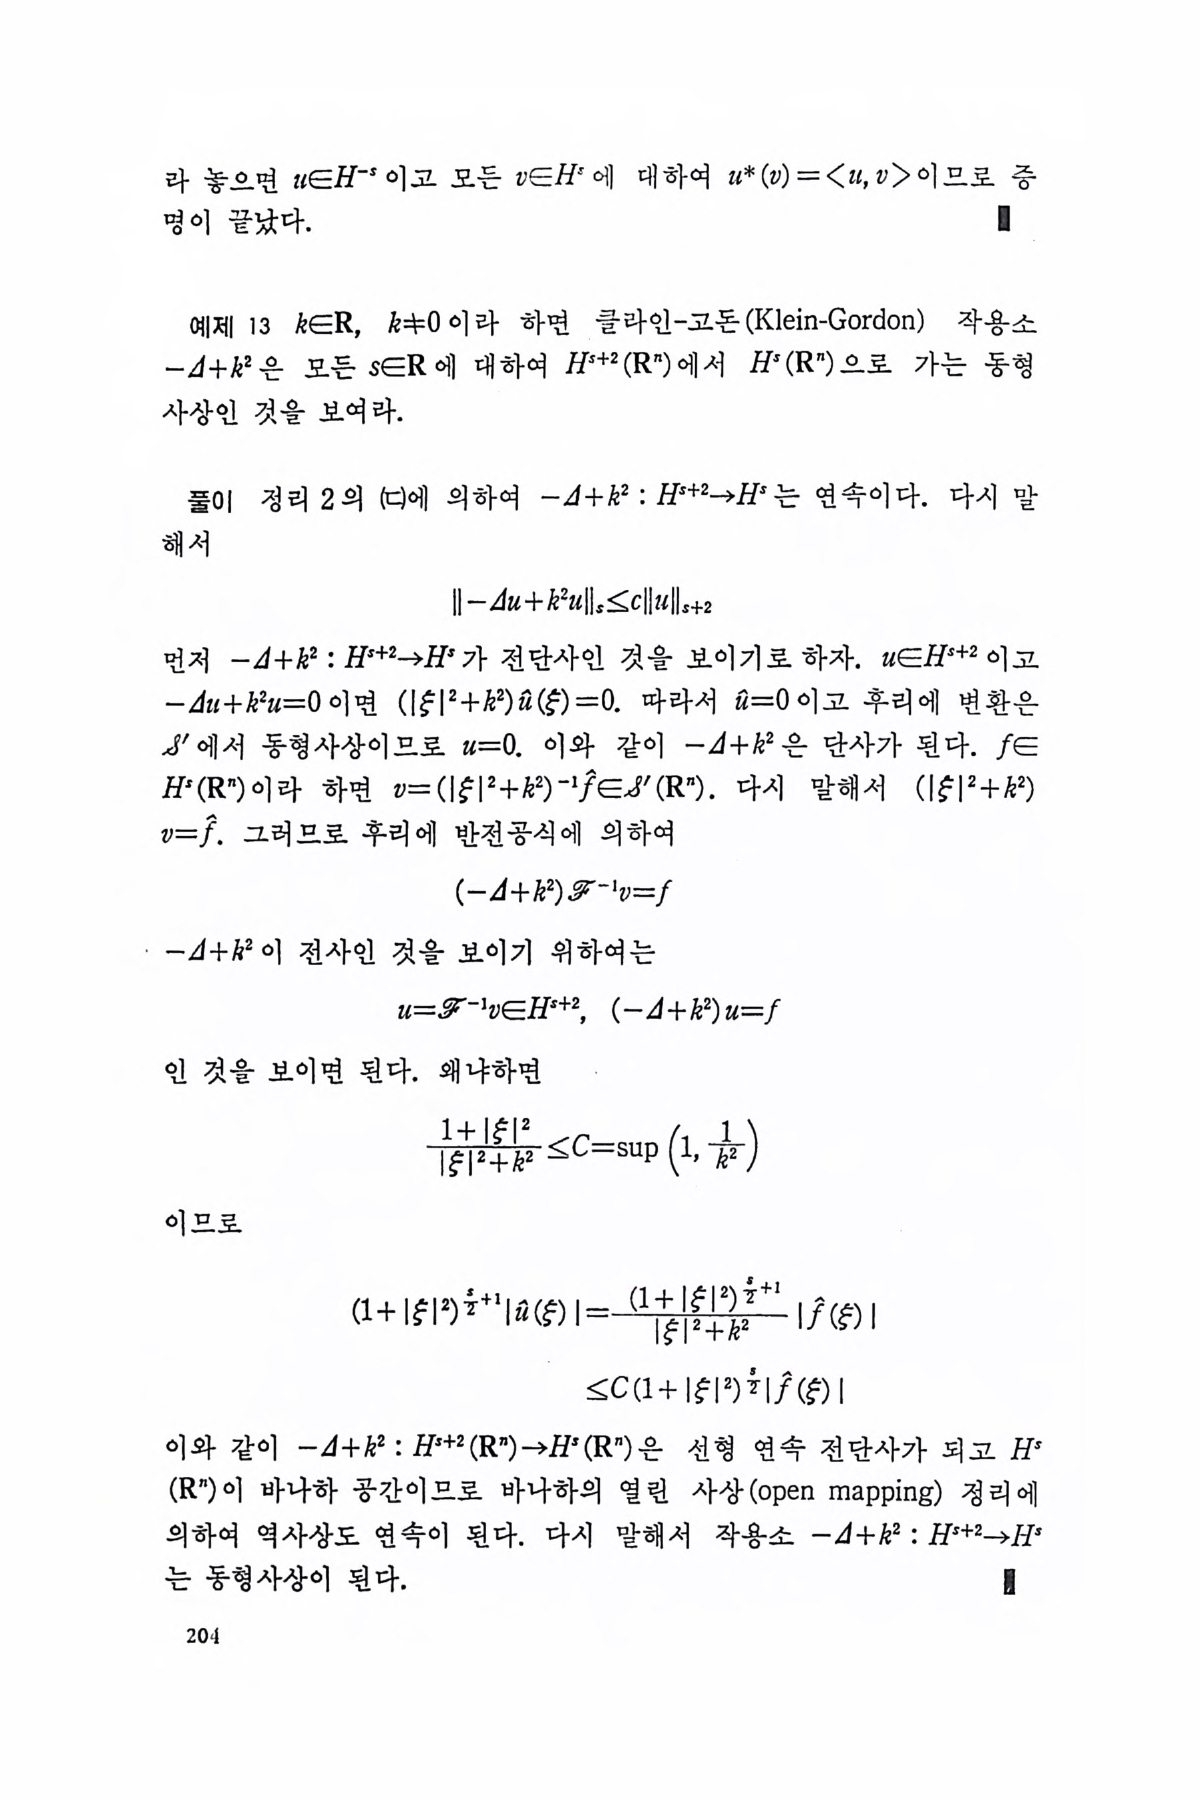 라 놓으면 u∈H⁻ˢ이고 모든 v∈Hˢ에 대하여 u*(v)=<u, v>이므로 증
명이 끝났다.
예제 13 k∈R, k≠0이라 하면 클라인-고돈(Klein-Gordon) 작용소
−Δ+k²은 모든 s∈R에 대하여 Hˢ⁺²(Rⁿ)에서 Hˢ(Rⁿ)으로 가는 동형
사상인 것을 보여라.
풀이 정리 2의 (ㄷ)에 의하여 −Δ+k² : Hˢ⁺²→Hˢ는 연속이다. 다시 말
해서
‖−Δu+k²u‖ₛ≤c‖u‖ₛ₊₂
먼저 −Δ+k² : Hˢ⁺²→Hˢ가 전단사인 것을 보이기로 하자. u∈Hˢ⁺²이고
−Δu+k²u=0이면 (|ξ|²+k²)û(ξ)=0. 따라서 û=0이고 후리에 변환은
𝒮′에서 동형사상이므로 u=0. 이와 같이 −Δ+k²은 단사가 된다. f∈
Hˢ(Rⁿ)이라 하면 v=(|ξ|²+k²)⁻¹f̂∈𝒮′(Rⁿ). 다시 말해서 (|ξ|²+k²)
v=f̂. 그러므로 후리에 반전공식에 의하여
(−Δ+k²)ℱ⁻¹v=f
−Δ+k²이 전사인 것을 보이기 위하여는
u=ℱ⁻¹v∈Hˢ⁺², (−Δ+k²)u=f
인 것을 보이면 된다. 왜냐하면
(1+|ξ|²)/(|ξ|²+k²) ≤C=sup (1, 1/k²)
이므로
(1+|ξ|²)^(s/2+1)|û(ξ)|= (1+|ξ|²)^(s/2+1)/(|ξ|²+k²) |f̂(ξ)|
≤C(1+|ξ|²)^(s/2)|f̂(ξ)|
이와 같이 −Δ+k² : Hˢ⁺²(Rⁿ)→Hˢ(Rⁿ)은 선형 연속 전단사가 되고 Hˢ
(Rⁿ)이 바나하 공간이므로 바나하의 열린 사상(open mapping) 정리에
의하여 역사상도 연속이 된다. 다시 말해서 작용소 −Δ+k² : Hˢ⁺²→Hˢ
는 동형사상이 된다.
204